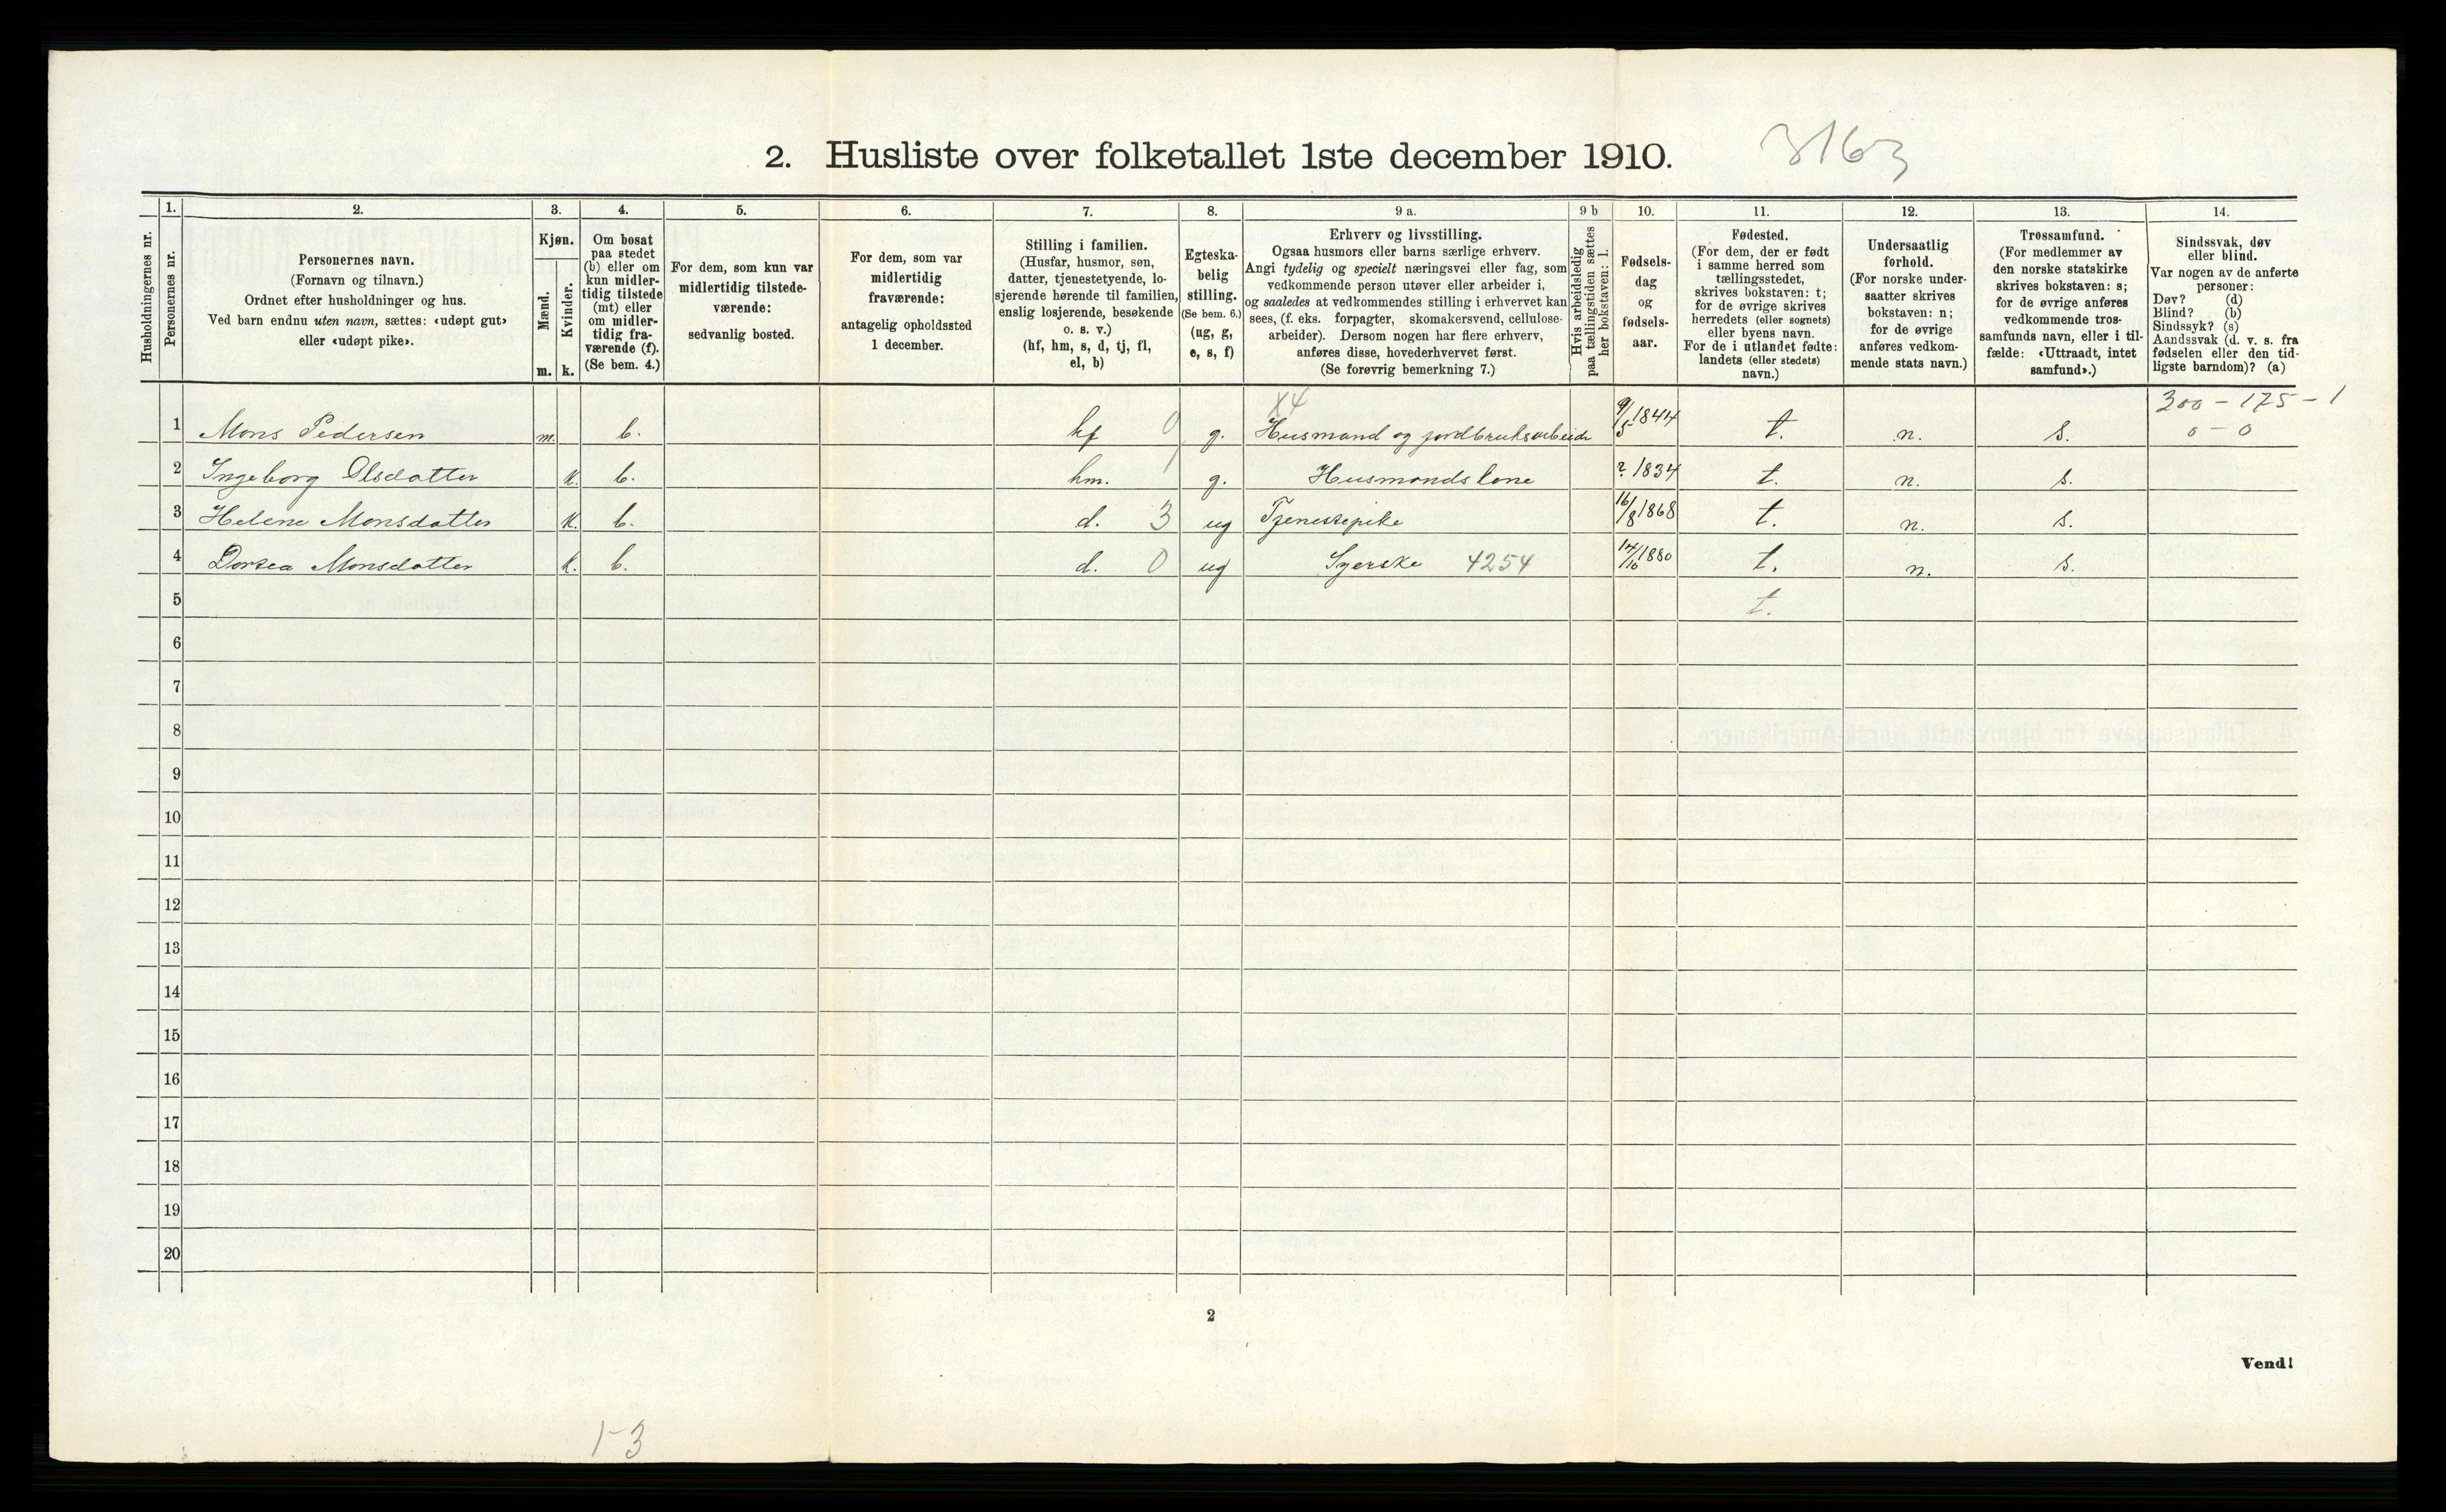 2. Husliste over folketallet 1ste december 1910.
3163
Husholdningernes nr.
1.
Personernes nr.
2.
Personernes navn.
(Fornavn og tilnavn.)
Ordnet efter husholdninger og hus.
Ved barn endnu uten navn, sættes: «udøpt gut»
eller «udøpt pike».
3.
Kjøn.
Mænd.
Kvinder.
m. k.
4.
Om bosat
paa stedet
(b) eller om
kun midler-
tidig tilstede
(mt) eller
om midler-
tidig fra-
værende (f).
(Se bem. 4.)
5.
For dem, som kun var
midlertidig tilstede-
værende:
sedvanlig bosted.
6.
For dem, som var
midlertidig
fraværende:
antagelig opholdssted
1 december.
7.
Stilling i familien.
(Husfar, husmor, søn,
datter, tjenestetyende, lo-
sjerende hørende til familien,
enslig losjerende, besøkende
o. s. v.)
(hf, hm, s, d, tj, fl,
el, b)
8.
Egteska-
belig
stilling.
(Se bem. 6.)
(ug, g,
e, s, f)
9 a.
Erhverv og livsstilling.
Ogsaa husmors eller barns særlige erhverv.
Angi tydelig og specielt næringsvei eller fag, som
vedkommende person utøver eller arbeider i,
og saaledes at vedkommendes stilling i erhvervet kan
sees, (f. eks. forpagter, skomakersvend, cellulose-
arbeider). Dersom nogen har flere erhverv,
anføres disse, hovederhvervet først.
(Se forøvrig bemerkning 7.)
9 b
Hvis arbeidsledig
paa tællingstiden sættes
her bokstaven: l.
10.
Fødsels-
dag
og
fødsels-
aar.
11.
Fødested.
(For dem, der er født
i samme herred som
tællingsstedet,
skrives bokstaven: t;
for de øvrige skrives
herredets (eller sognets)
eller byens navn.
For de i utlandet fødte:
landets (eller stedets)
navn.)
12.
Undersaatlig
forhold.
(For norske under-
saatter skrives
bokstaven: n;
for de øvrige
anføres vedkom-
mende stats navn.)
13.
Trossamfund.
(For medlemmer av
den norske statskirke
skrives bokstaven: s;
for de øvrige anføres
vedkommende tros-
samfunds navn, eller i til-
fælde: «Uttraadt, intet
samfund».)
14.
Sindssvak, døv
eller blind.
Var nogen av de anførte
personer:
Døv? (d)
Blind? (b)
Sindssyk? (s)
Aandssvak (d. v. s. fra
fødselen eller den tid-
ligste barndom)? (a)
X4
300 - 175 - 1
1 Mons Pedersen m. b. hf 0 g. Husmand og jordbruksarbeide 9/5 1844 t. n. s. 0 - 0
2 Ingeborg Olsdatter k. b. hm. g. Husmandskone ? 1834 t. n. s.
3 Helene Monsdatter k. b. d. 3 ug Tjenestepike 16/8 1868 t. n. s.
4 Dortea Monsdatter k. b. d. 0 ug Syerske 4254 14/10 1880 t. n. s.
5 t.
6
7
8
9
10
11
12
13
14
15
16
17
18
19
20
2
Vend!
1-3